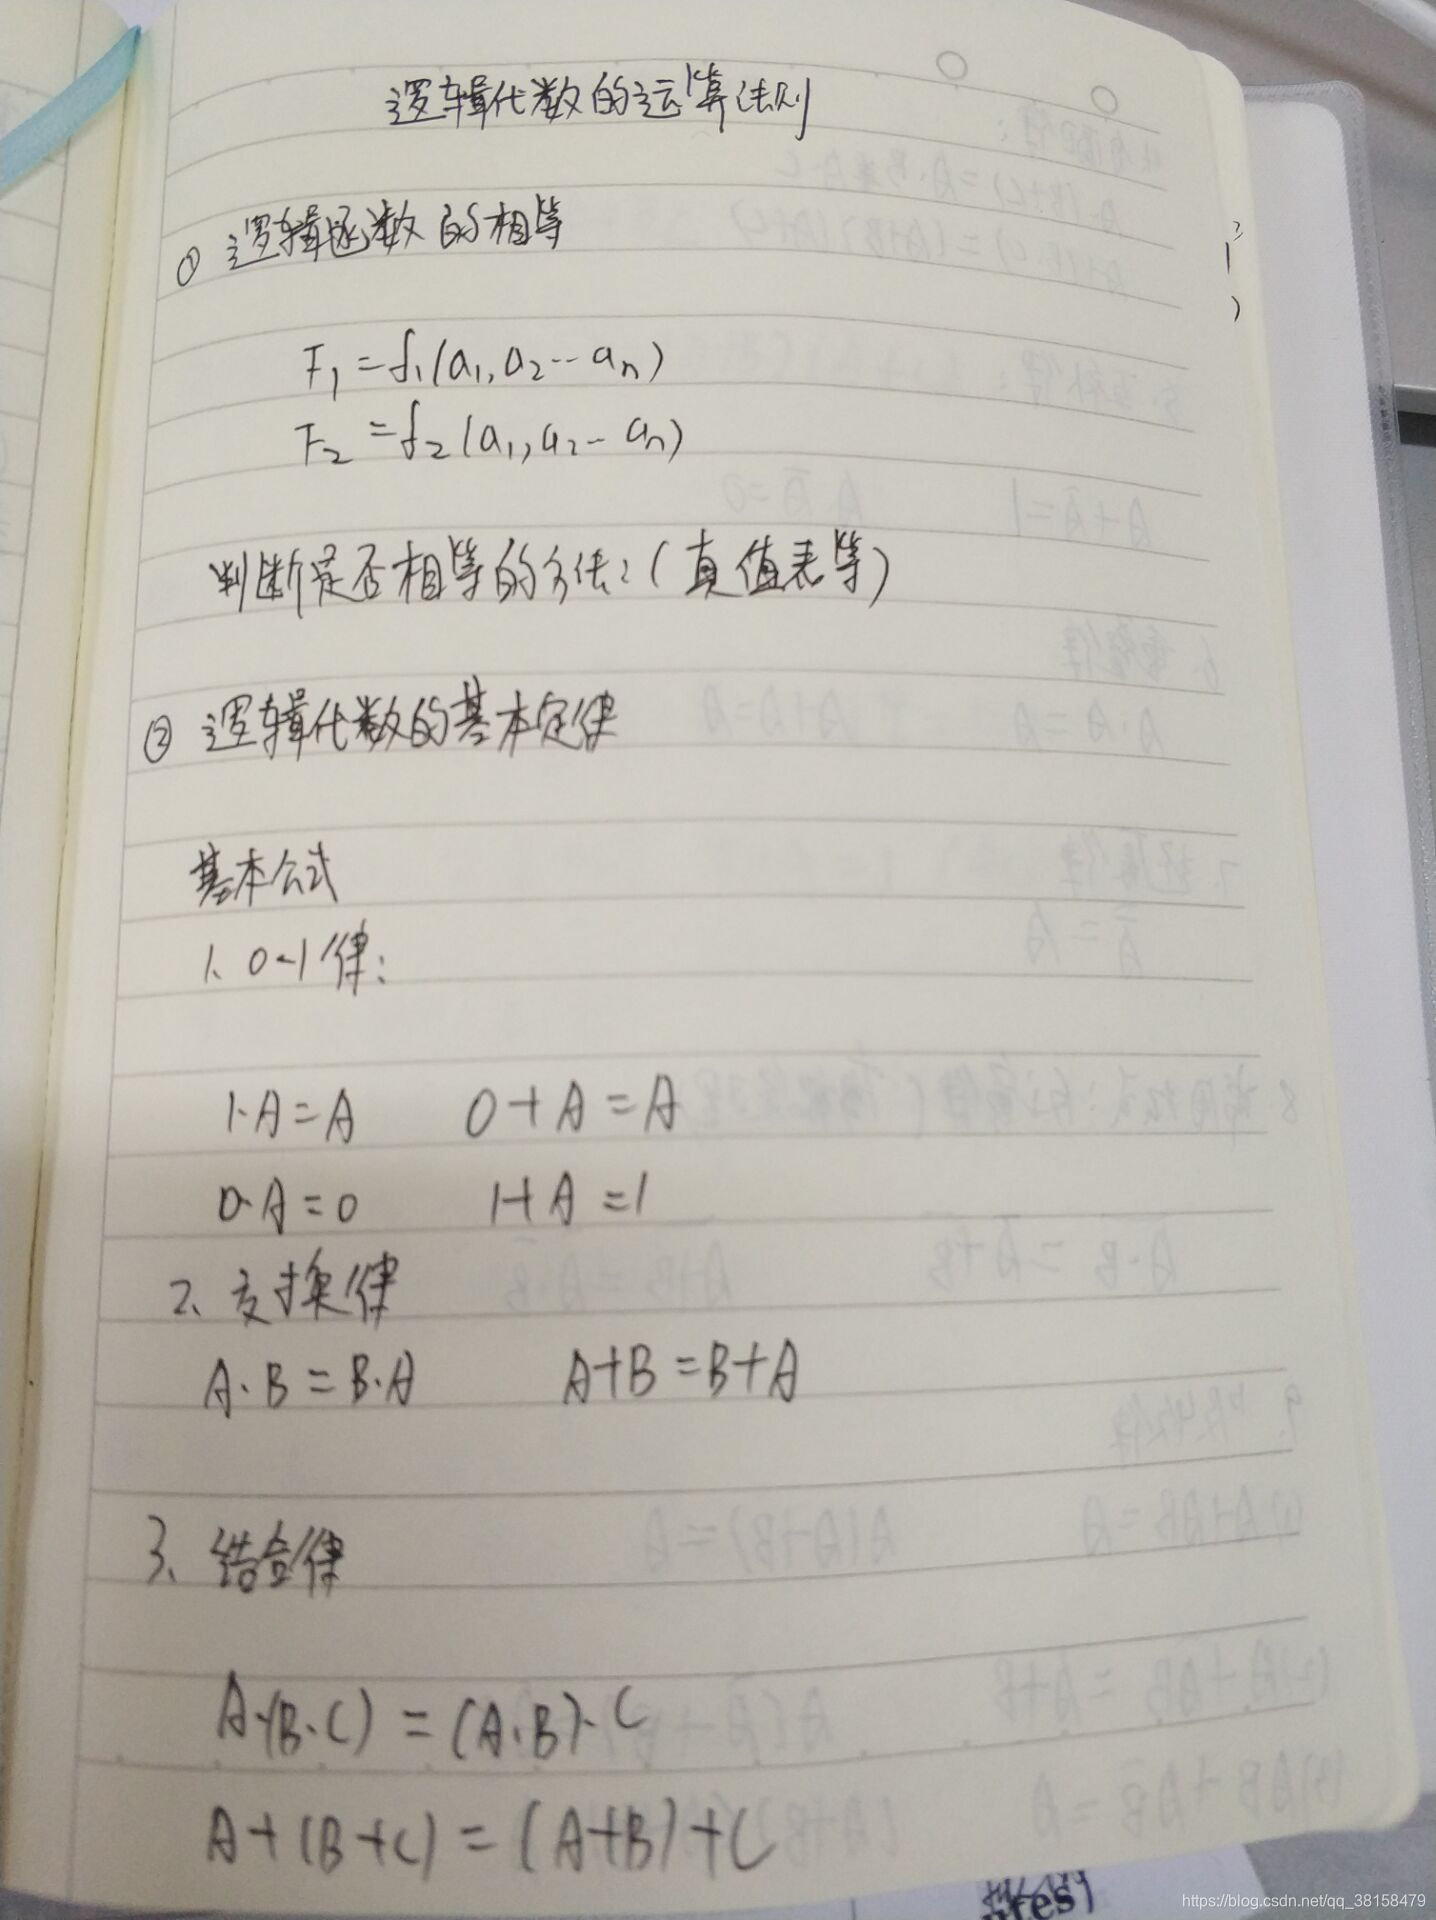 逻辑代数的运算法则
① 逻辑函数的相等
F₁=f₁(a₁,a₂--aₙ)
F₂=f₂(a₁,a₂--aₙ)
判断是否相等的方法:(真值表等)
② 逻辑代数的基本定律
基本公式
1、0-1律:
1·A=A 0+A=A
0·A=0 1+A=1
2、交换律
A·B=B·A A+B=B+A
3、结合律
A·(B·C)=(A·B)·C
A+(B+C)=(A+B)+C
https://blog.csdn.net/qq_38158479